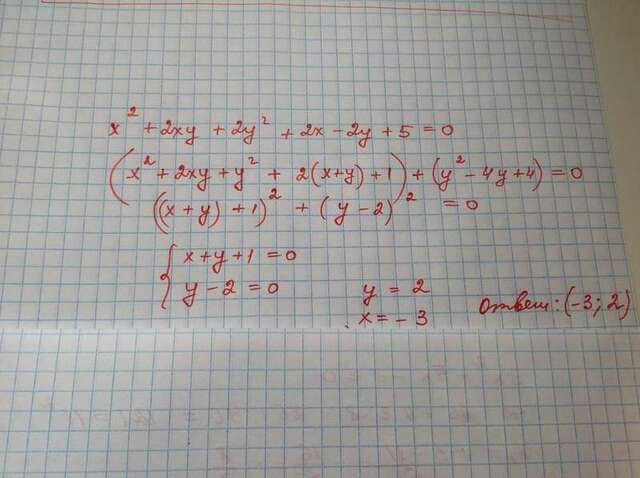 x² + 2xy + 2y² + 2x − 2y + 5 = 0
(x² + 2xy + y² + 2(x+y) + 1) + (y² − 4y + 4) = 0
((x + y) + 1)² + (y − 2)² = 0
{ x + y + 1 = 0
y − 2 = 0
y = 2
x = − 3
Ответ: (−3; 2)